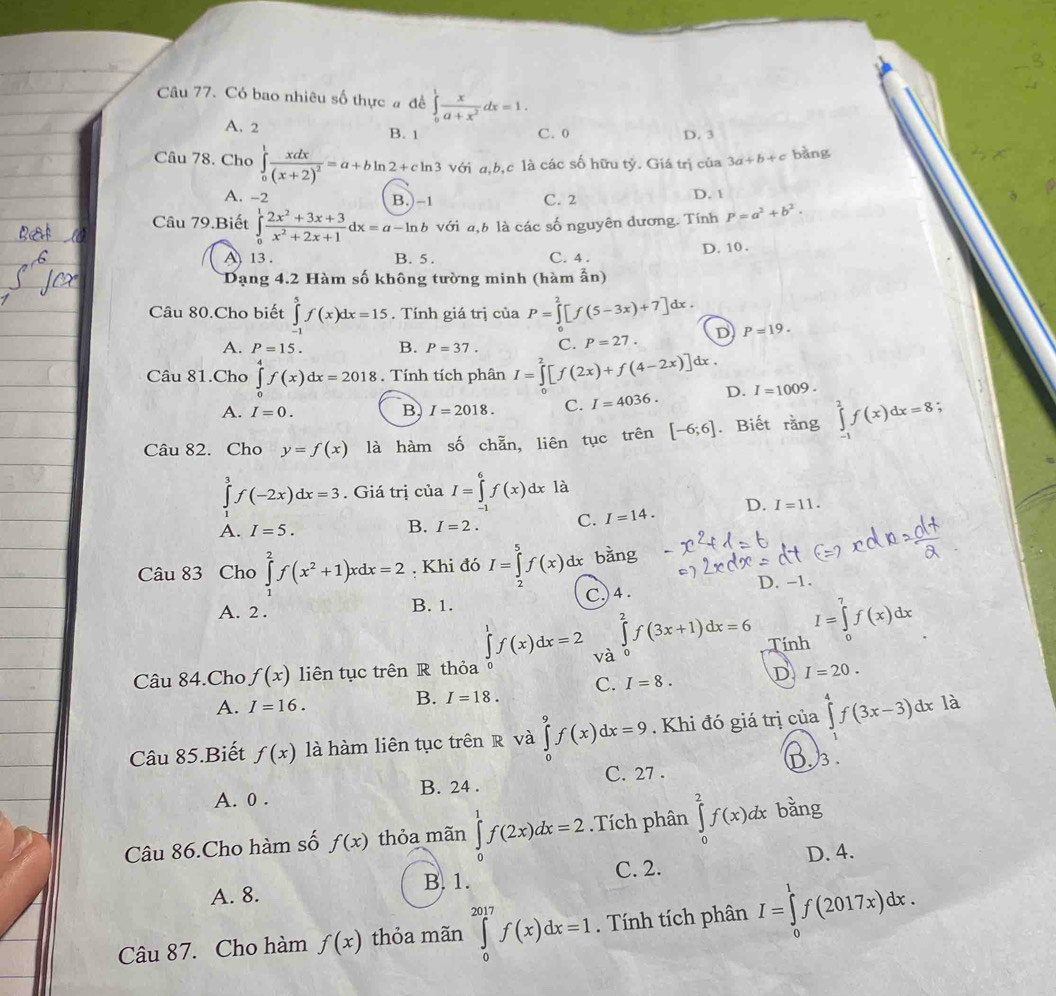 Câu 77. Có bao nhiêu số thực a để ∫₀¹ x/(a + x²) dx = 1.
A. 2 B. 1 C. 0 D. 3
Câu 78. Cho ∫₀¹ xdx/(x+2)² = a + b ln 2 + c ln 3 với a,b,c là các số hữu tỷ. Giá trị của 3a + b + c bằng
A. −2 B. −1 C. 2 D. 1
Câu 79.Biết ∫₀¹ (2x² + 3x + 3)/(x² + 2x + 1) dx = a − ln b với a,b là các số nguyên dương. Tính P = a² + b².
A 13. B. 5. C. 4. D. 10.
Dạng 4.2 Hàm số không tường minh (hàm ẩn)
Câu 80.Cho biết ∫₋₁⁵ f(x)dx = 15. Tính giá trị của P = ∫₀² [f(5−3x)+7]dx.
A. P = 15. B. P = 37. C. P = 27. D P = 19.
Câu 81.Cho ∫₀⁴ f(x)dx = 2018. Tính tích phân I = ∫₀² [f(2x)+f(4−2x)]dx.
A. I = 0. B. I = 2018. C. I = 4036. D. I = 1009.
Câu 82. Cho y = f(x) là hàm số chẵn, liên tục trên [−6;6]. Biết rằng ∫₋₁² f(x)dx = 8;
∫₁³ f(−2x)dx = 3. Giá trị của I = ∫₋₁⁶ f(x)dx là
A. I = 5. B. I = 2. C. I = 14. D. I = 11.
Câu 83 Cho ∫₁² f(x²+1)xdx = 2. Khi đó I = ∫₂⁵ f(x)dx bằng
- x²+1=t
=> 2xdx = dt (=) xdx = dt/2
A. 2. B. 1. C. 4. D. −1.
Câu 84.Cho f(x) liên tục trên ℝ thỏa ∫₀¹ f(x)dx = 2 và ∫₀² f(3x+1)dx = 6 Tính I = ∫₀⁷ f(x)dx.
A. I = 16. B. I = 18. C. I = 8. D. I = 20.
Câu 85.Biết f(x) là hàm liên tục trên ℝ và ∫₀⁹ f(x)dx = 9. Khi đó giá trị của ∫₁⁴ f(3x−3)dx là
A. 0. B. 24. C. 27. D. 3.
Câu 86.Cho hàm số f(x) thỏa mãn ∫₀¹ f(2x)dx = 2.Tích phân ∫₀² f(x)dx bằng
A. 8. B. 1. C. 2. D. 4.
Câu 87. Cho hàm f(x) thỏa mãn ∫₀²⁰¹⁷ f(x)dx = 1. Tính tích phân I = ∫₀¹ f(2017x)dx.